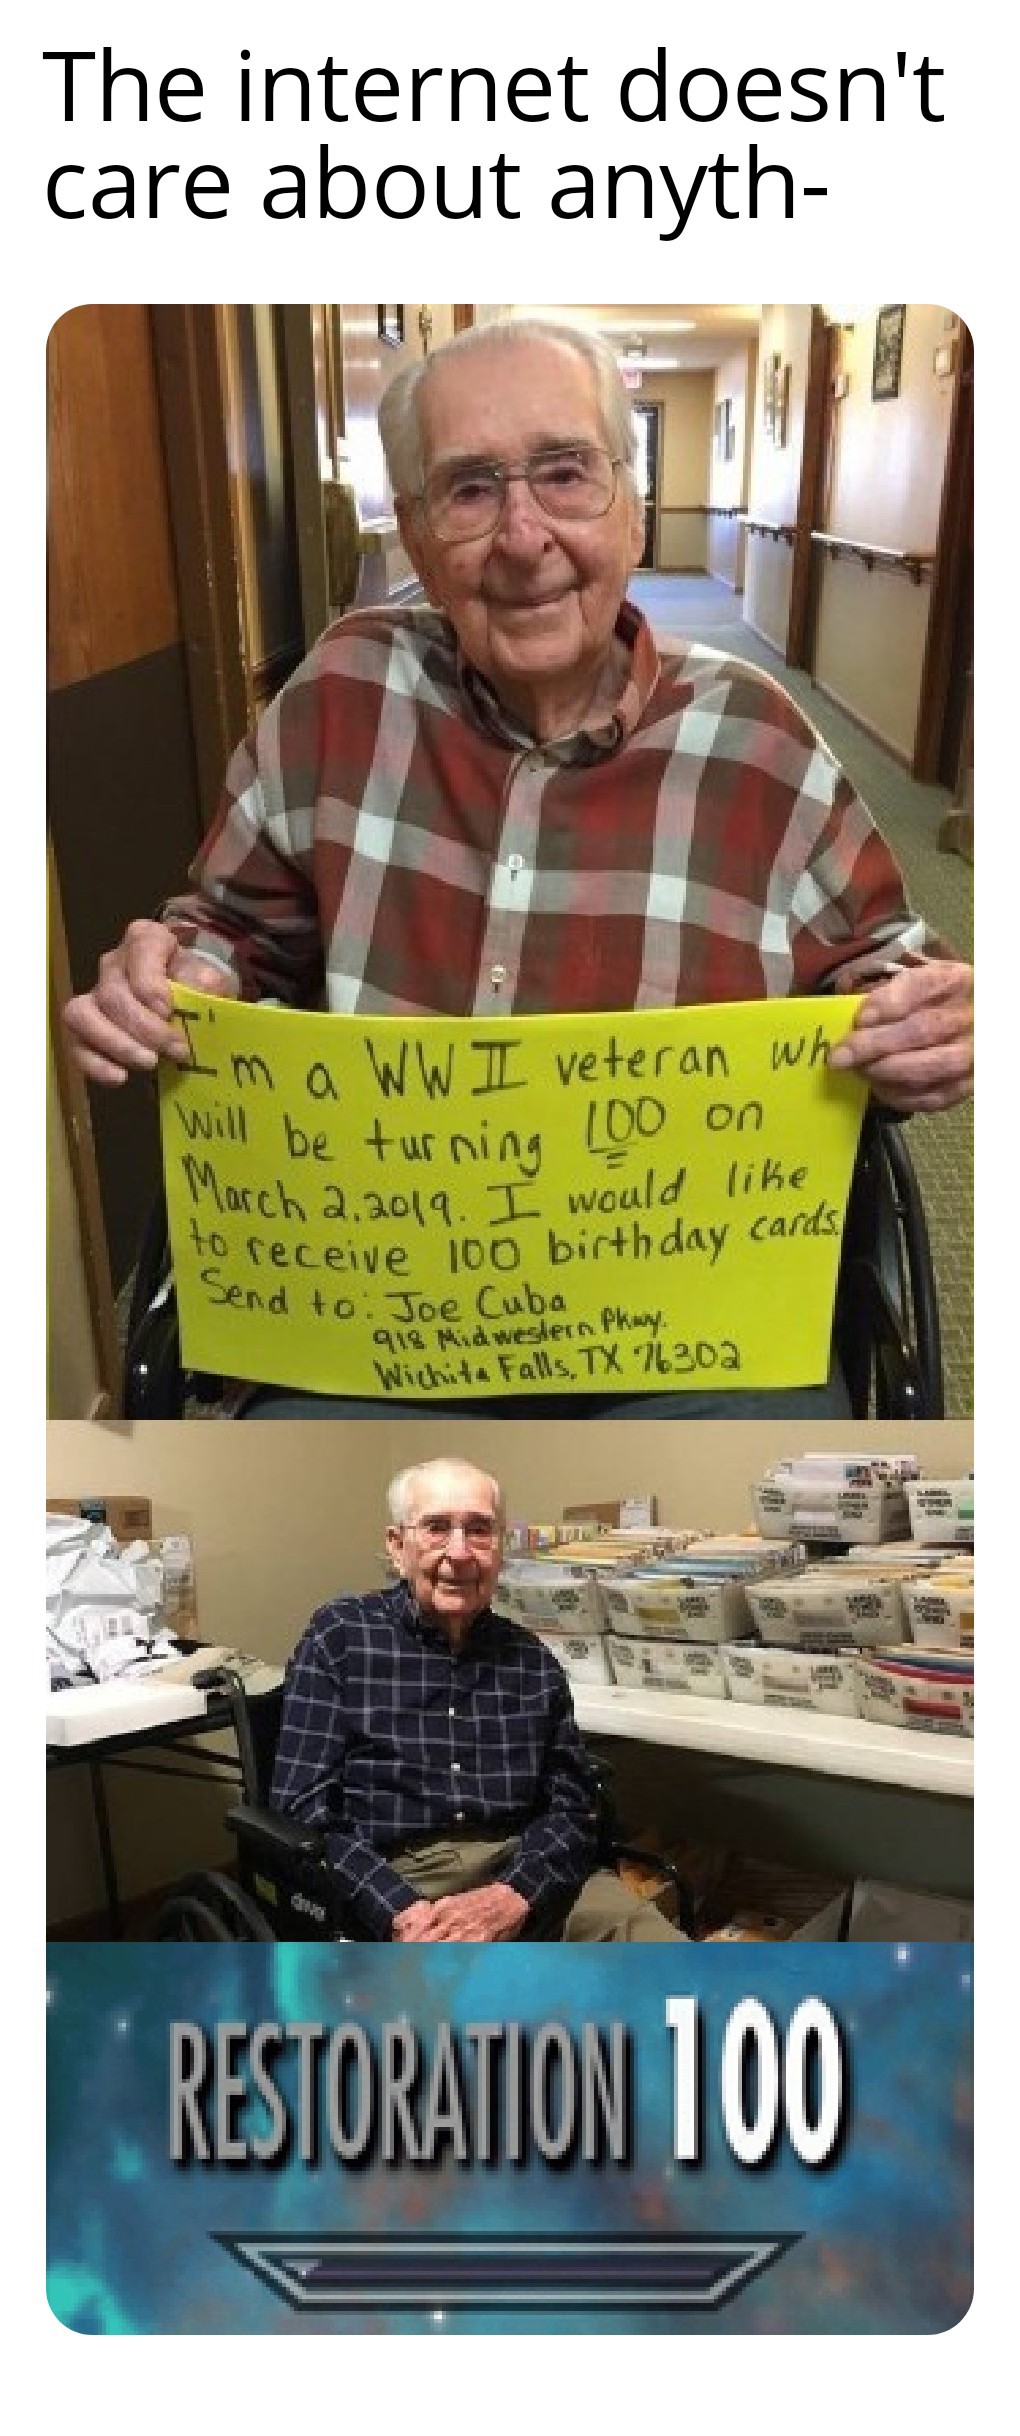 The internet doesn't
care about anyth-
I'm a WWII veteran wh
will be turning 100 on
March 2, 2019. I would like
to receive 100 birthday cards.
Send to: Joe Cuba
918 Midwestern Pkwy.
Wichita Falls, TX 76302
RESTORATION 100